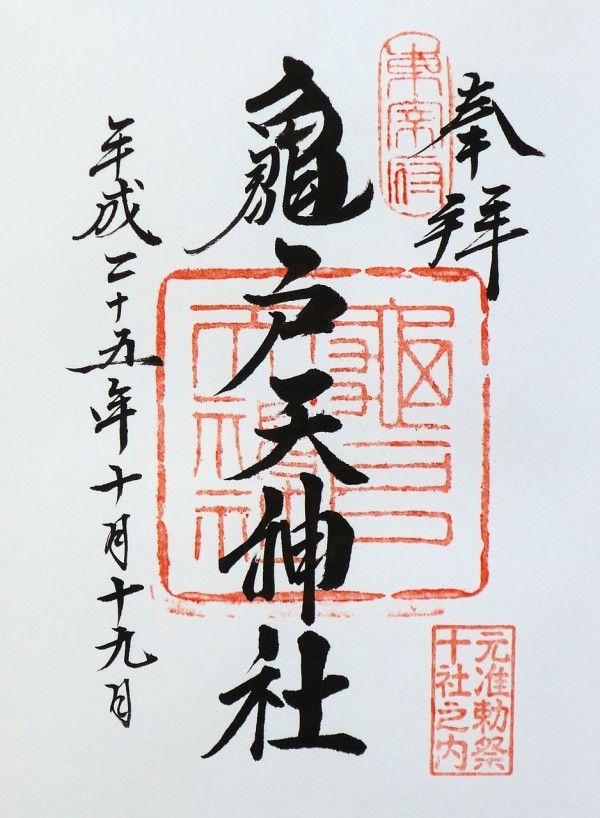 奉拝
東宰府
龜戸天神社
元准勅祭
十社之内
平成二十五年十月十九日